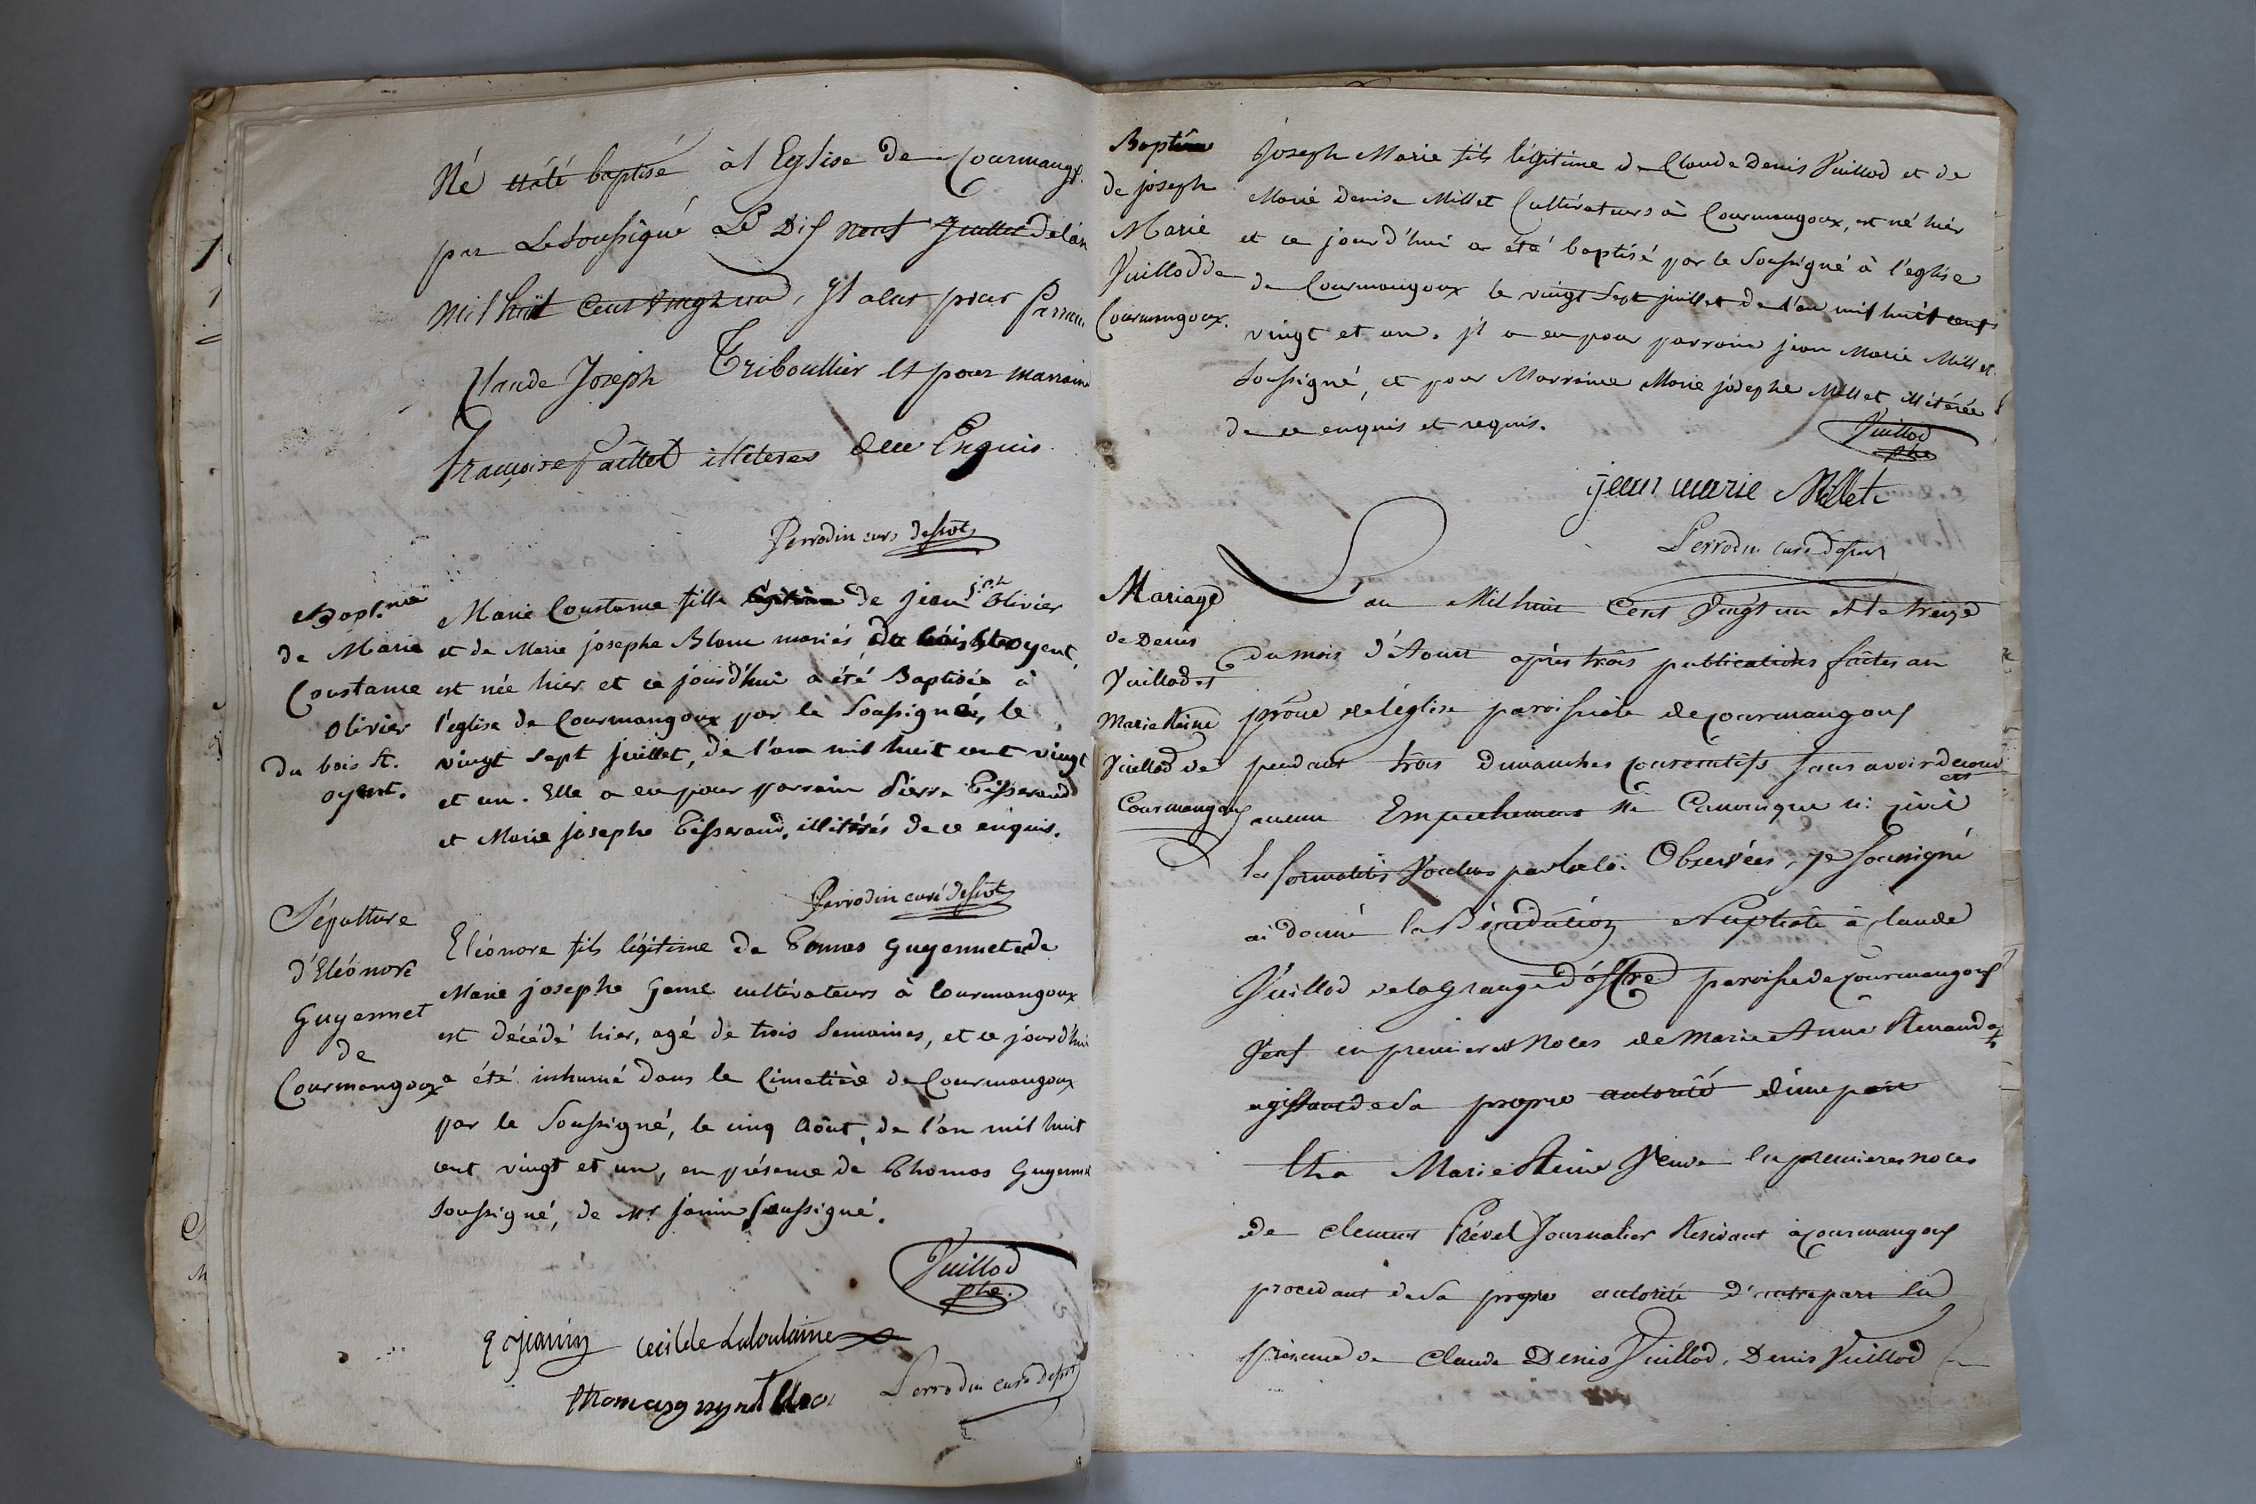 Né étaté baptisé à l Eglise de Courmangx
par Lesoussigné Le Dis neuf Juillet de l'an
mil huit Cent vingt un, Il a eut pour Parrain
Claude Joseph Triboullier et pour marraine
françoise paillet illiteres de ce Enquis.
Perrodin curé dessot
Bapt.me
de Marie
Constance
Olivier
du bois st.
oyent.
Marie Constance fille légitime de jean jph Olivier
et de Marie josephe Blanc mariés, du bois st oyent,
est née hier et ce jourd'hui a été Baptisée à
l'eglise de Courmangoux par le Soussigné, le
vingt sept juillet, de l'an mil huit cent vingt
et un. Elle a eu pour parrain Pierre Tisserand
et Marie josephe Tisserand, illitérés de ce enquis.
Perrodin curé dessot
Sépulture
d'Eléonore
Guyennet
de
Courmangoux
Eléonore fils légitime de Tomas Guyennet et de
Marie josephe Game cultivateurs à Courmangoux
est décédé hier, agé de trois Semaines, et ce jourd'hui
a été inhumé dans le Cimetière de Courmangoux
par le Soussigné, le cinq Août, de l'an mil huit
cent vingt et un, en présence de Thomas Guyennet
soussigné, de Mr janin soussigné.
Vuillod
ptre.
janin cecilde Lafontaine
thomas
Perrodin curé dessot
Baptême
de joseph
Marie
Vuillod de
Courmangoux.
Joseph Marie fils légitime de Claude Denis Vuillod et de
Marie Denise Millet Cultivateurs à Courmangoux, est né hier
et ce jourd'hui a été baptisé par le Soussigné à l'eglise
de Courmangoux le vingt Sept juillet de l'an mil huit cent
vingt et un. jl a eu pour parrain jean Marie Millet
soussigné, et pour Marraine Marie josephe Millet illitérée
de ce enquis et requis.
Vuillod
ptre
jean marie Millet
Perrodin curé dessot
Mariage
de Denis
Vuillod et
Marie Reine
Vuillod de
Courmangoux
L'an Mil huit Cent Vingt un et le treize
du mois d'Aoust après trois publications faites au
prône de l'église paroissiale de Courmangoux
pendant trois dimanches consecutifs sans avoir decouvert
aucun Empechement Ni Canonique ni civil
les formalités Voulues par la loi Observées, je soussigné
ai donné la Bénédiction Nuptiale à Claude
Vuillod de la Grange paroisse de Courmangoux
Veuf en premieres Noces de Marie Anne Renaud
agissant de sa propre autorité d'une part
Et a Marie Reine Veuve en premieres noces
de Clement Prével Journalier Residant à Courmangoux
procedant de sa propre autorité d'autre part En
presence de Claude Denis Vuillod, Denis Vuillod